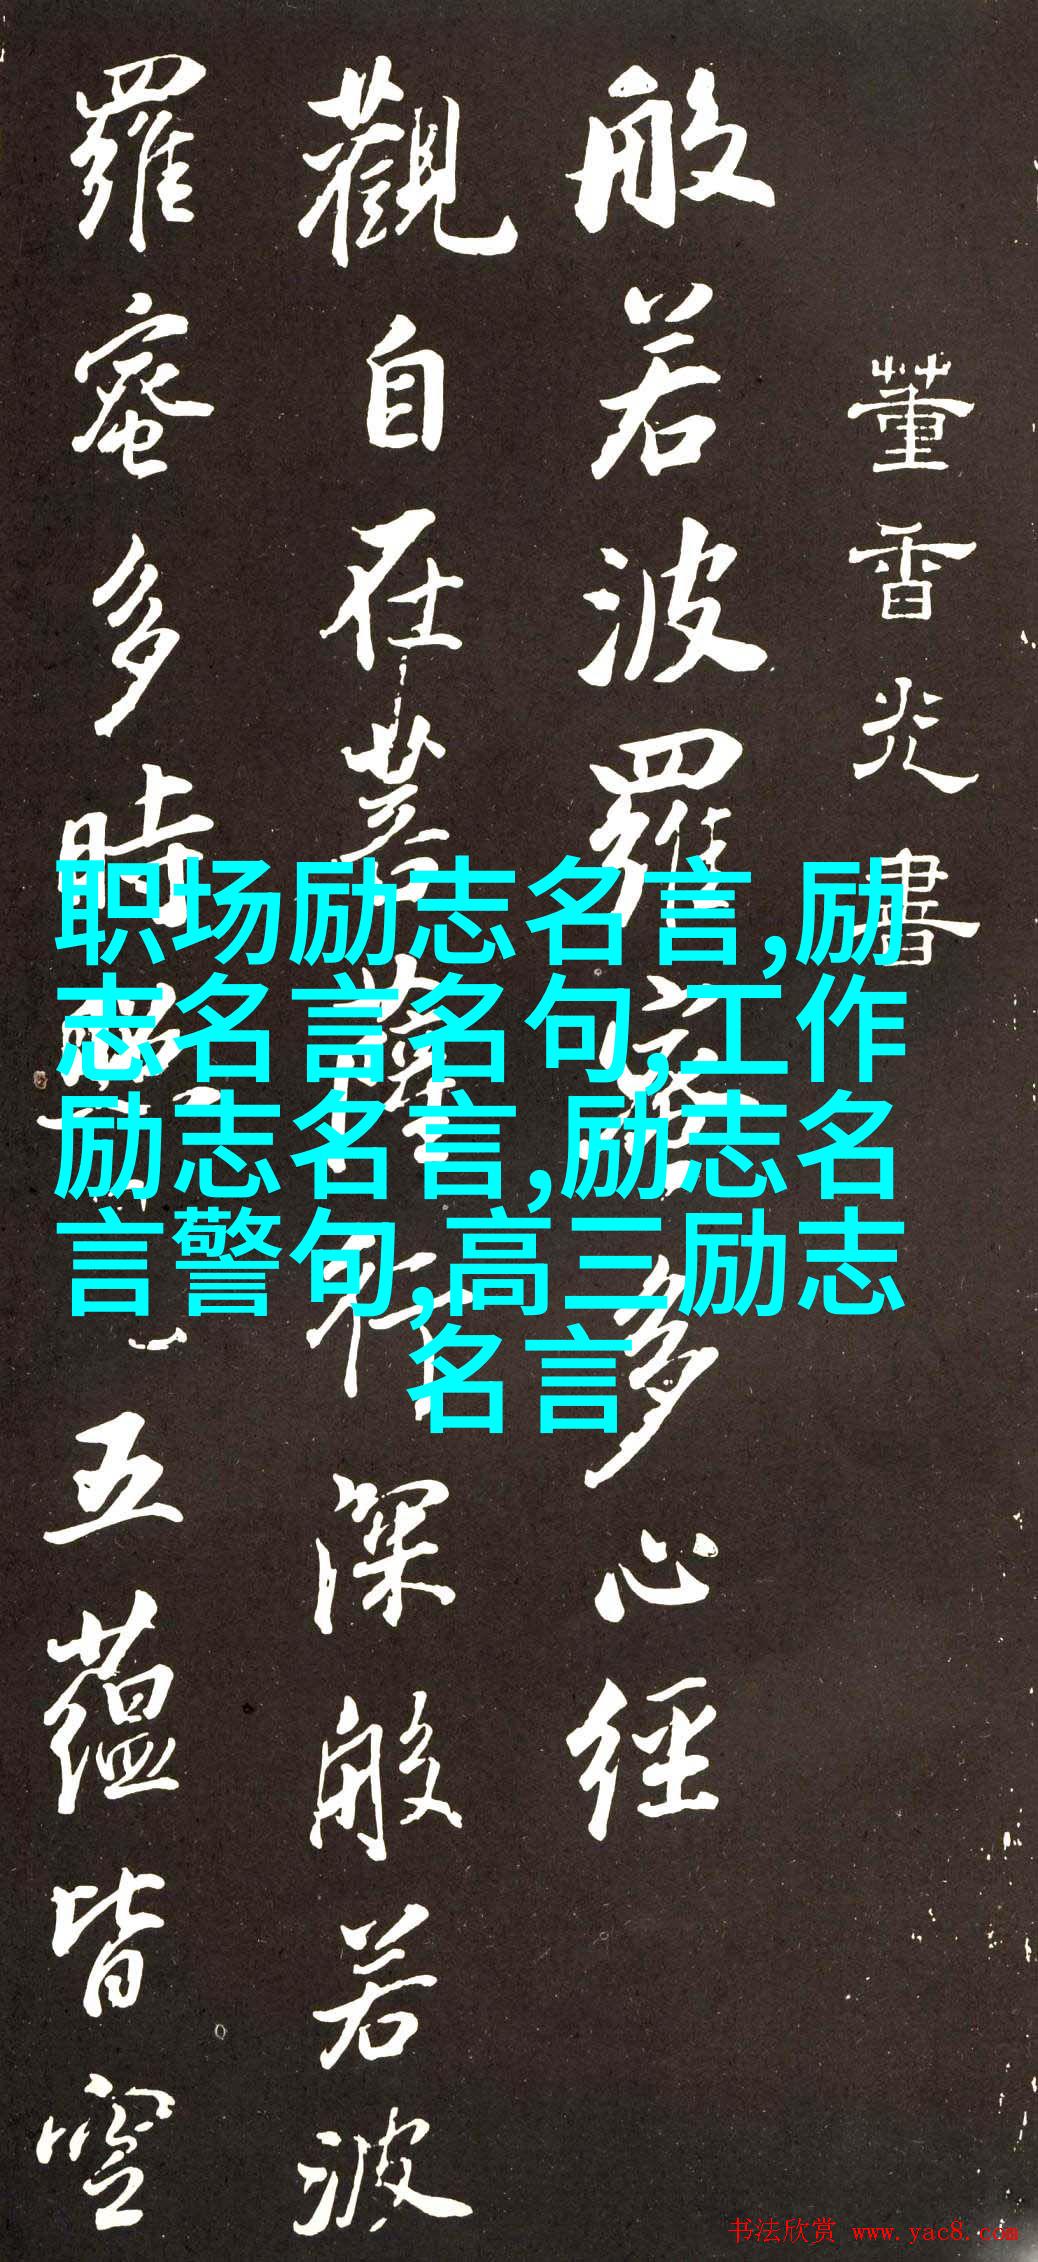 董香光書
般若波羅蜜多心經
觀自在菩薩行深般若波
羅蜜多時照五蘊皆空
职场励志名言,励
志名言名句,工作
励志名言,励志名
言警句,高三励志
名言
书法欣赏 www.yac8.com